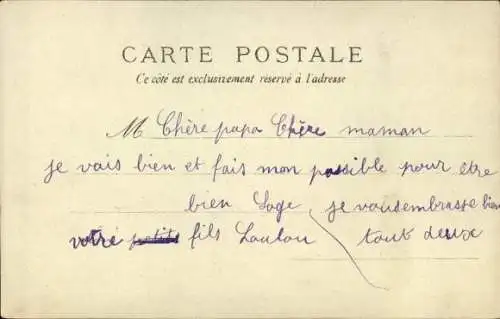 CARTE POSTALE
Ce côté est exclusivement réservé à l'adresse
M Chère papa Chère maman
je vais bien et fais mon possible pour être
bien Sage, je vousembrasse bien
votre petits fils Loulou tout deux